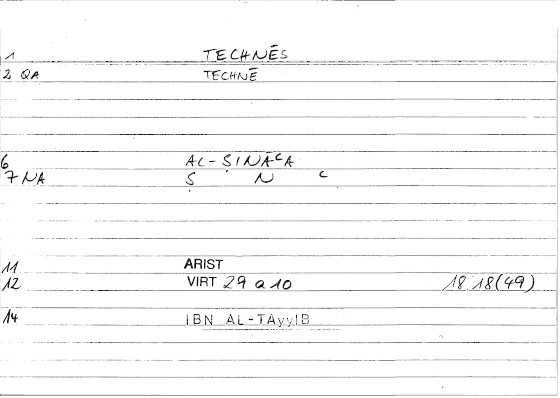 1 TECHNĒS
2 QA TECHNĒ
6 AL-ṢINĀᶜA
7 NA Ṣ N ᶜ
11 ARIST
12 VIRT 29 a 10 18 18(49)
14 IBN AL-TAyyIB